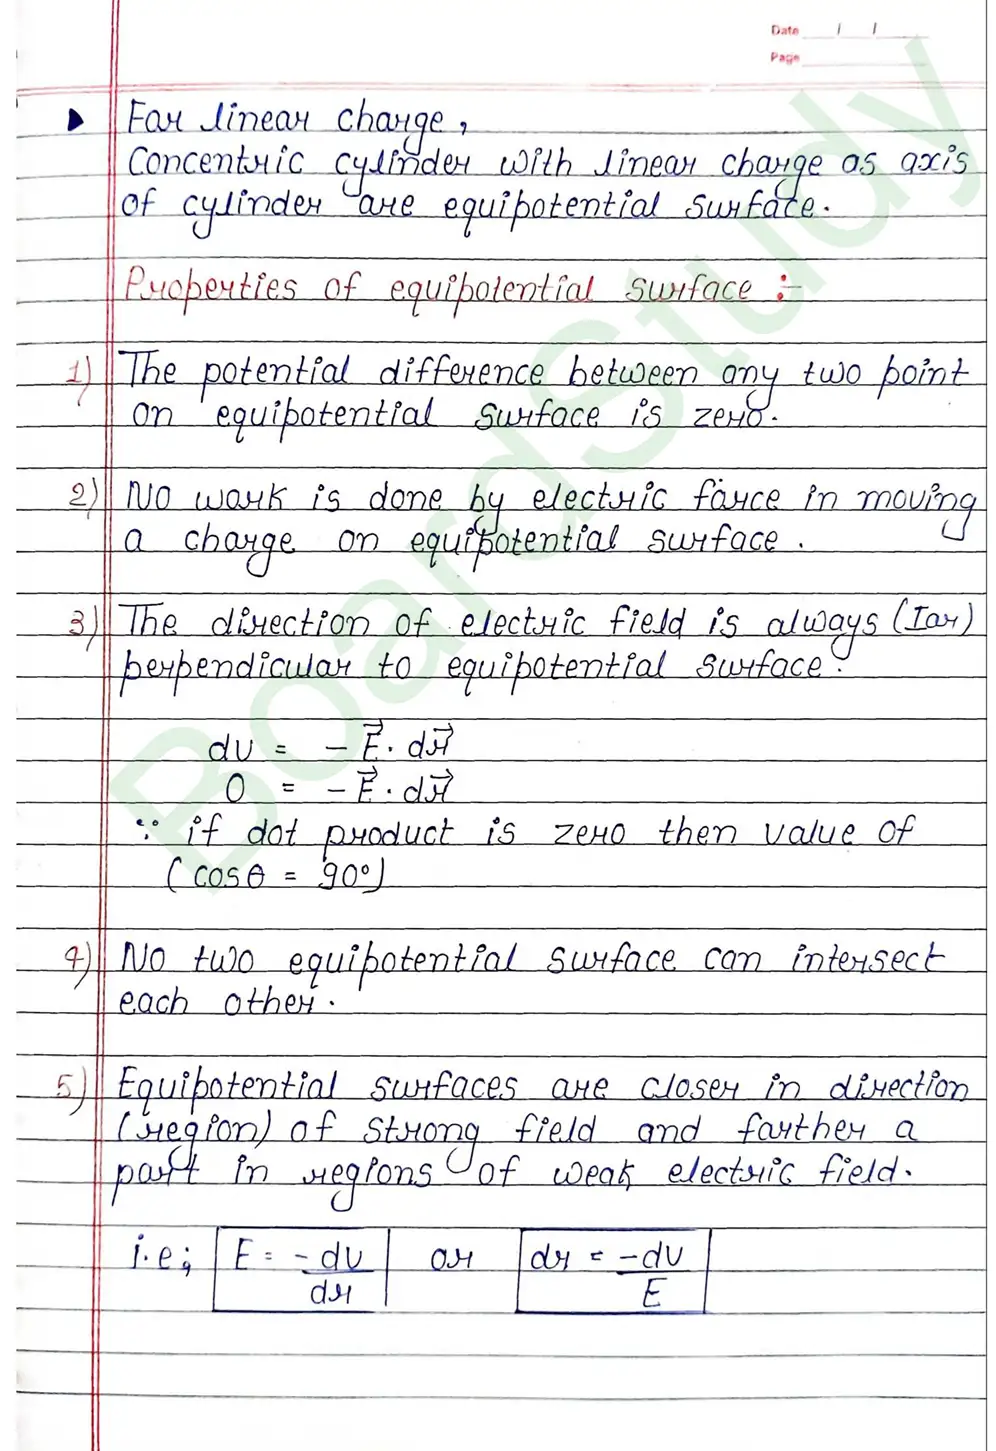 Date / /
Page
For linear charge,
Concentric cylinder with linear charge as axis
of cylinder are equipotential surface.
Properties of equipotential surface :-
1) The potential difference between any two point
on equipotential surface is zero.
2) No work is done by electric force in moving
a charge on equipotential surface.
3) The direction of electric field is always (Iar)
perpendicular to equipotential surface.
dv = - E⃗ . dr⃗
0 = - E⃗ . dr⃗
∵ if dot product is zero then value of
(cosθ = 90°)
4) No two equipotential surface can intersect
each other.
5) Equipotential surfaces are closer in direction
(region) of strong field and farther a
part in regions of weak electric field.
i.e; E = -dv/dr or dr = -dv/E
BoardStudy